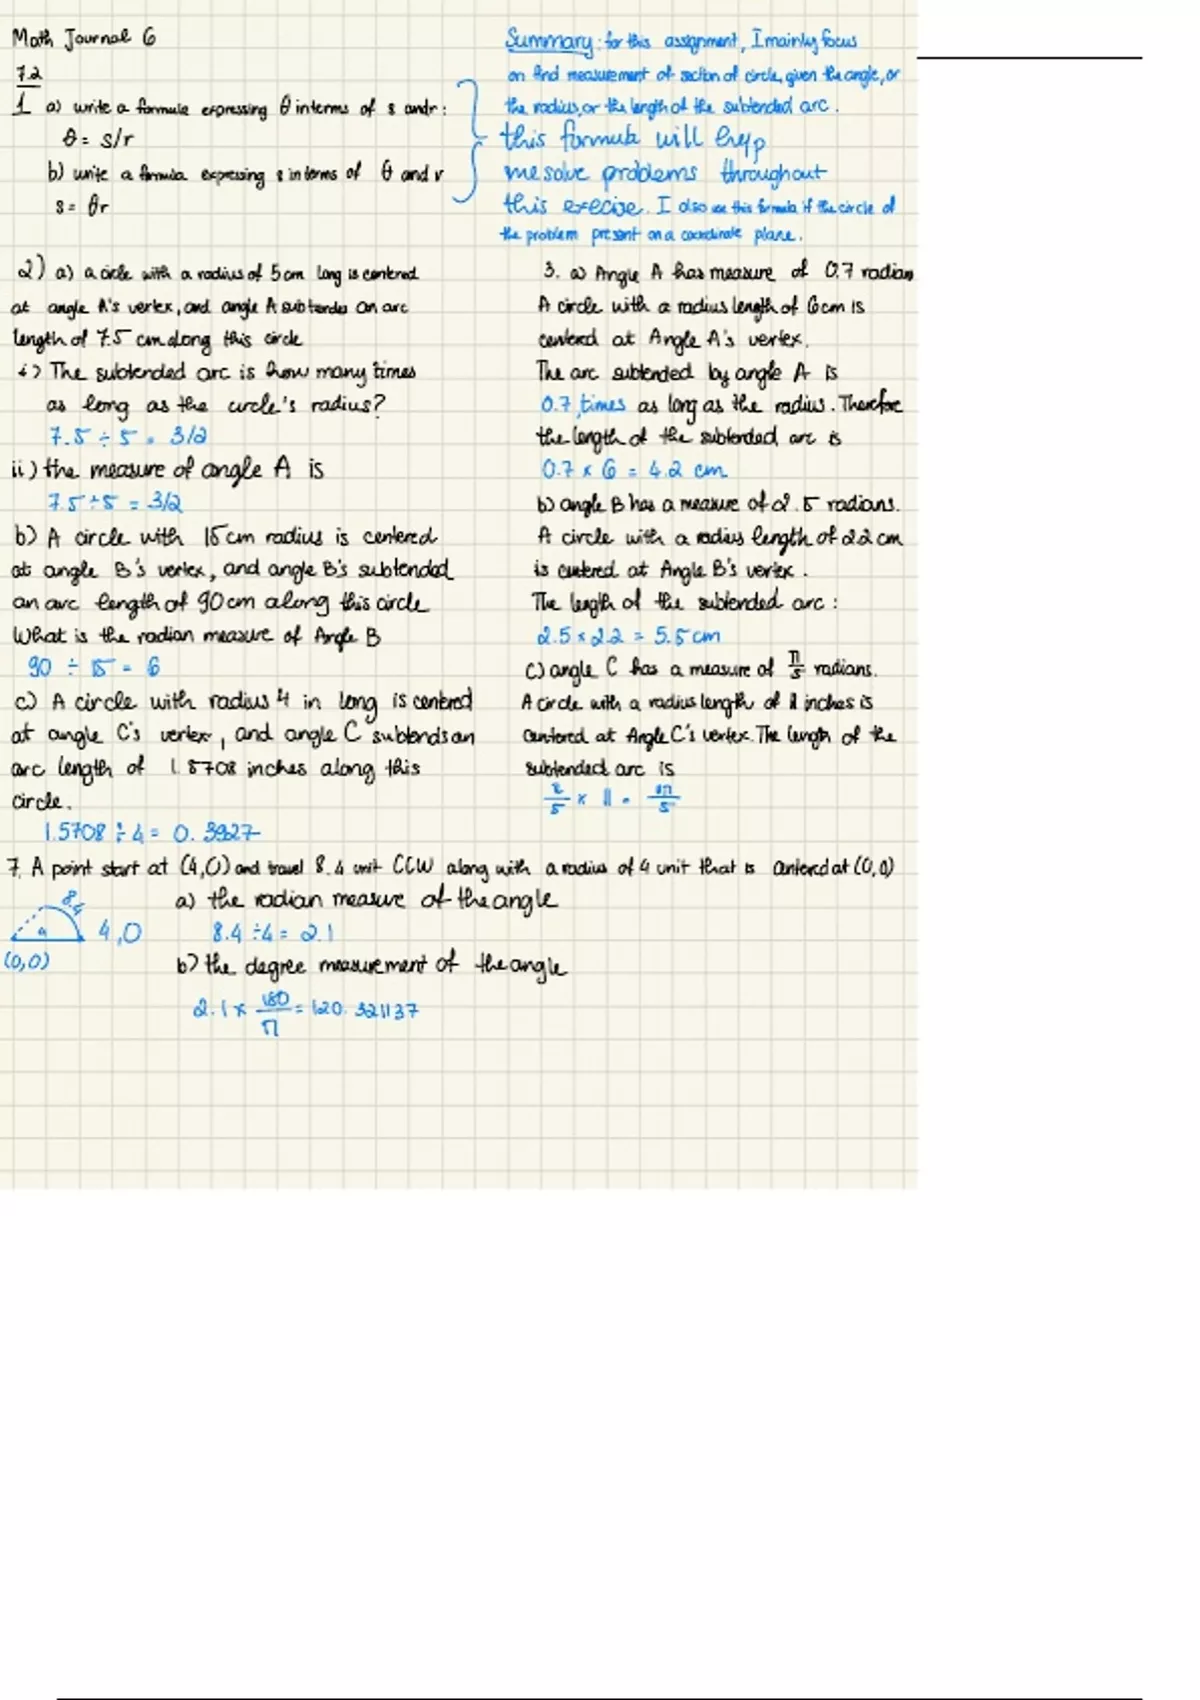 Math Journal 6
7.2
1 a) write a formula expressing θ in terms of s and r:
θ = s/r
b) write a formula expressing s in terms of θ and r
s = θr
Summary: for this assignment, I mainly focus
on find measurement of section of circle, given the angle, or
the radius, or the length of the subtended arc.
this formula will help
me solve problems throughout
this execise. I also use this formula if the circle of
the problem present on a coordinate plane.
2) a) a circle with a radius of 5cm long is centered
at angle A's vertex, and angle A subtendes an arc
length of 7.5 cm along this circle
i) The subtended arc is how many times
as long as the circle's radius?
7.5 ÷ 5 = 3/2
ii) the measure of angle A is
7.5 ÷ 5 = 3/2
b) A circle with 15 cm radius is centered
at angle B's vertex, and angle B's subtended
an arc length of 90cm along this circle
What is the radian measure of Angle B
90 ÷ 15 = 6
c) A circle with radius 4 in long is centered
at angle C's vertex, and angle C subtends an
arc length of 1.5708 inches along this
circle.
1.5708 ÷ 4 = 0.3927
3. a) Angle A has measure of 0.7 radian
A circle with a radius length of 6cm is
centered at Angle A's vertex.
The arc subtended by angle A is
0.7 times as long as the radius. Therefore
the length of the subtended arc is
0.7 x 6 = 4.2 cm
b) angle B has a measure of 2.5 radians.
A circle with a radius length of 2.2 cm
is centered at Angle B's vertex.
The length of the subtended arc:
2.5 x 2.2 = 5.5 cm
c) angle C has a measure of π/5 radians.
A circle with a radius length of 11 inches is
centered at Angle C's vertex. The length of the
subtended arc is
π/5 x 11 = 11π/5
7. A point start at (4,0) and travel 8.4 unit CCW along with a radius of 4 unit that is centered at (0,0)
8.4
4,0
(0,0)
a) the radian measure of the angle
8.4 ÷ 4 = 2.1
b) the degree measurement of the angle
2.1 x 180/π = 120.321137